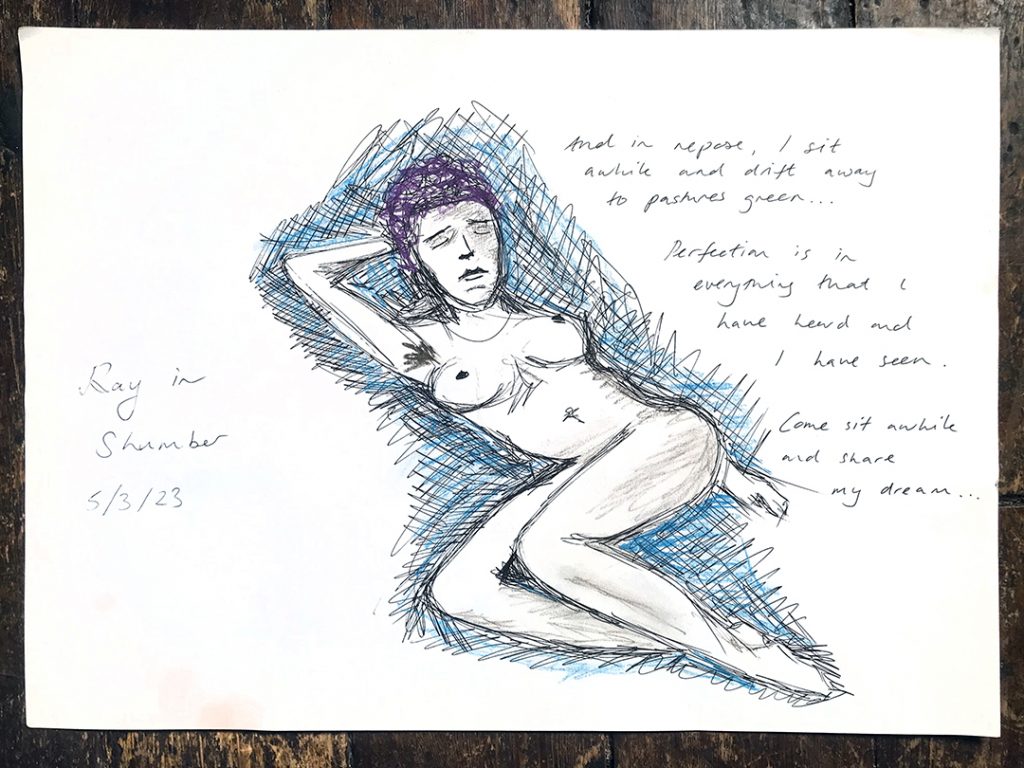 And in repose, I sit
awhile and drift away
to pastures green...
Perfection is in
everything that I
have heard and
I have seen.
Come sit awhile
and share
my dream...
Ray in
Slumber
5/3/23